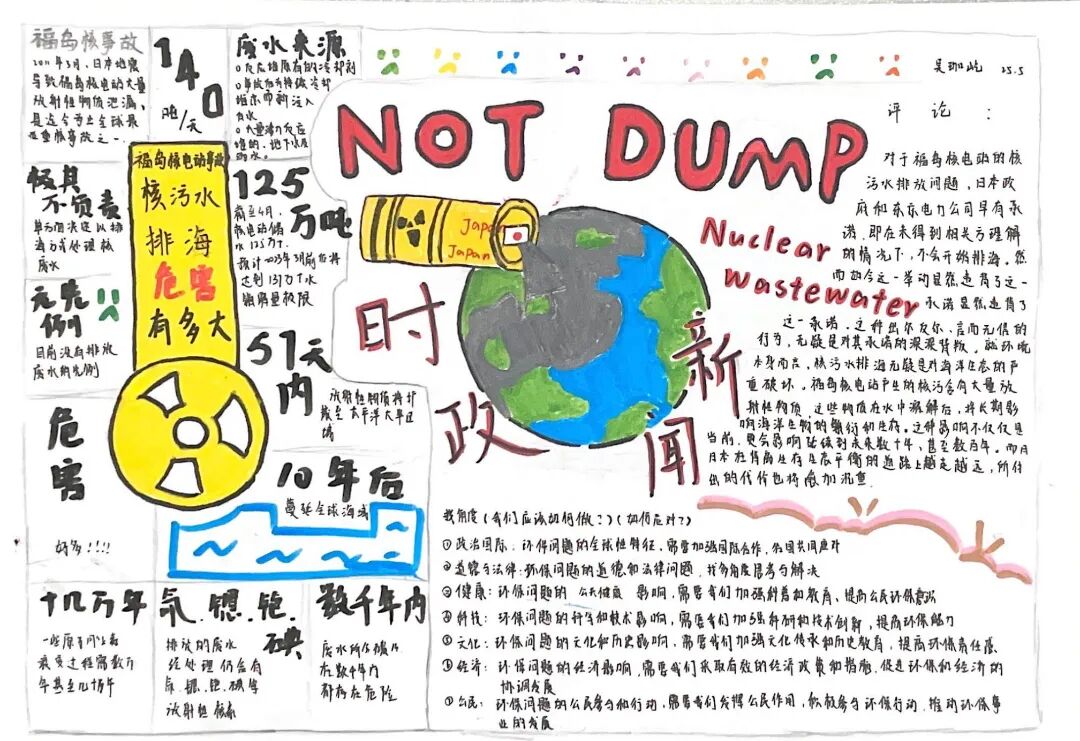 福岛核事故
2011年3月，日本地震
导致福岛核电站大量
放射性物质泄漏，
是迄今为止全球最
严重核事故之一．
140
吨/天
废水来源
福岛核电站事故
核污水
排海
危害
有多大
极其
不负责
单方面决定以排
海方式处理核
废水
无先
例
目前没有排放
废水的先例
危
害
好多！！！！
125
万吨
截至4月，
核电站储
水125万t．
预计2023年3月前后将
达到137万t水
57天
内
放射性物质将扩
散至太平洋大半区
域
10年后
蔓延全球海域
十几万年
年甚至几十万年
氚．锶．铯．
碘
排放的废水
经处理仍含有
氚．锶．铯．碘等
放射性核素
数千年内
废水所及海域
在数千年内
都存在危险
NOT DUMP
Nuclear
wastewater
Japan
Japan
时
政
新
闻
25.5
评论：
对于福岛核电站的核
污水排放问题，日本政
府和东京电力公司早有承
诺，即在未得到相关方理解
的情况下，不会开始排海．然
而如今这一举动显然违背了这一
承诺显然违背了
这一承诺．这种出尔反尔、言而无信的
行为，无疑是对其承诺的深深背叛．从环境
本身而言，核污水排海无疑是对海洋生态的严
重破坏．福岛核电站产生的核污含有大量放
射性物质，这些物质在水中溶解后，将长期影
响海洋生物的繁衍和生存．这种影响不仅仅是
当前，更会影响延续到未来数十年、甚至数百年．而且
日本在背离生存生态平衡的道路上越走越远，所付
出的代价也将愈加沉重．
我角度（我们应该如何做？）（如何应对？）
①政治国际：环保问题的全球性特征，需要加强国际合作，各国共同应对
②道德与法律：环保问题的道德和法律问题，我多角度思考与解决
③健康：环保问题的 公共健康 影响，需要我们加强科普和教育、提高公民环保意识
④科技：环保问题的科学和技术影响，需要我们加强科研和技术创新，提高环保能力
⑤文化：环保问题的文化和历史影响，需要我们加强文化传承和历史教育，提高环保责任感
⑥经济：环保问题的经济影响，需要我们采取有效的经济政策和措施，促进环保和经济的
协调发展
⑦公民：环保问题的公民参与和行动，需要我们发挥公民作用，积极参与环保行动．推动环保事
业的发展